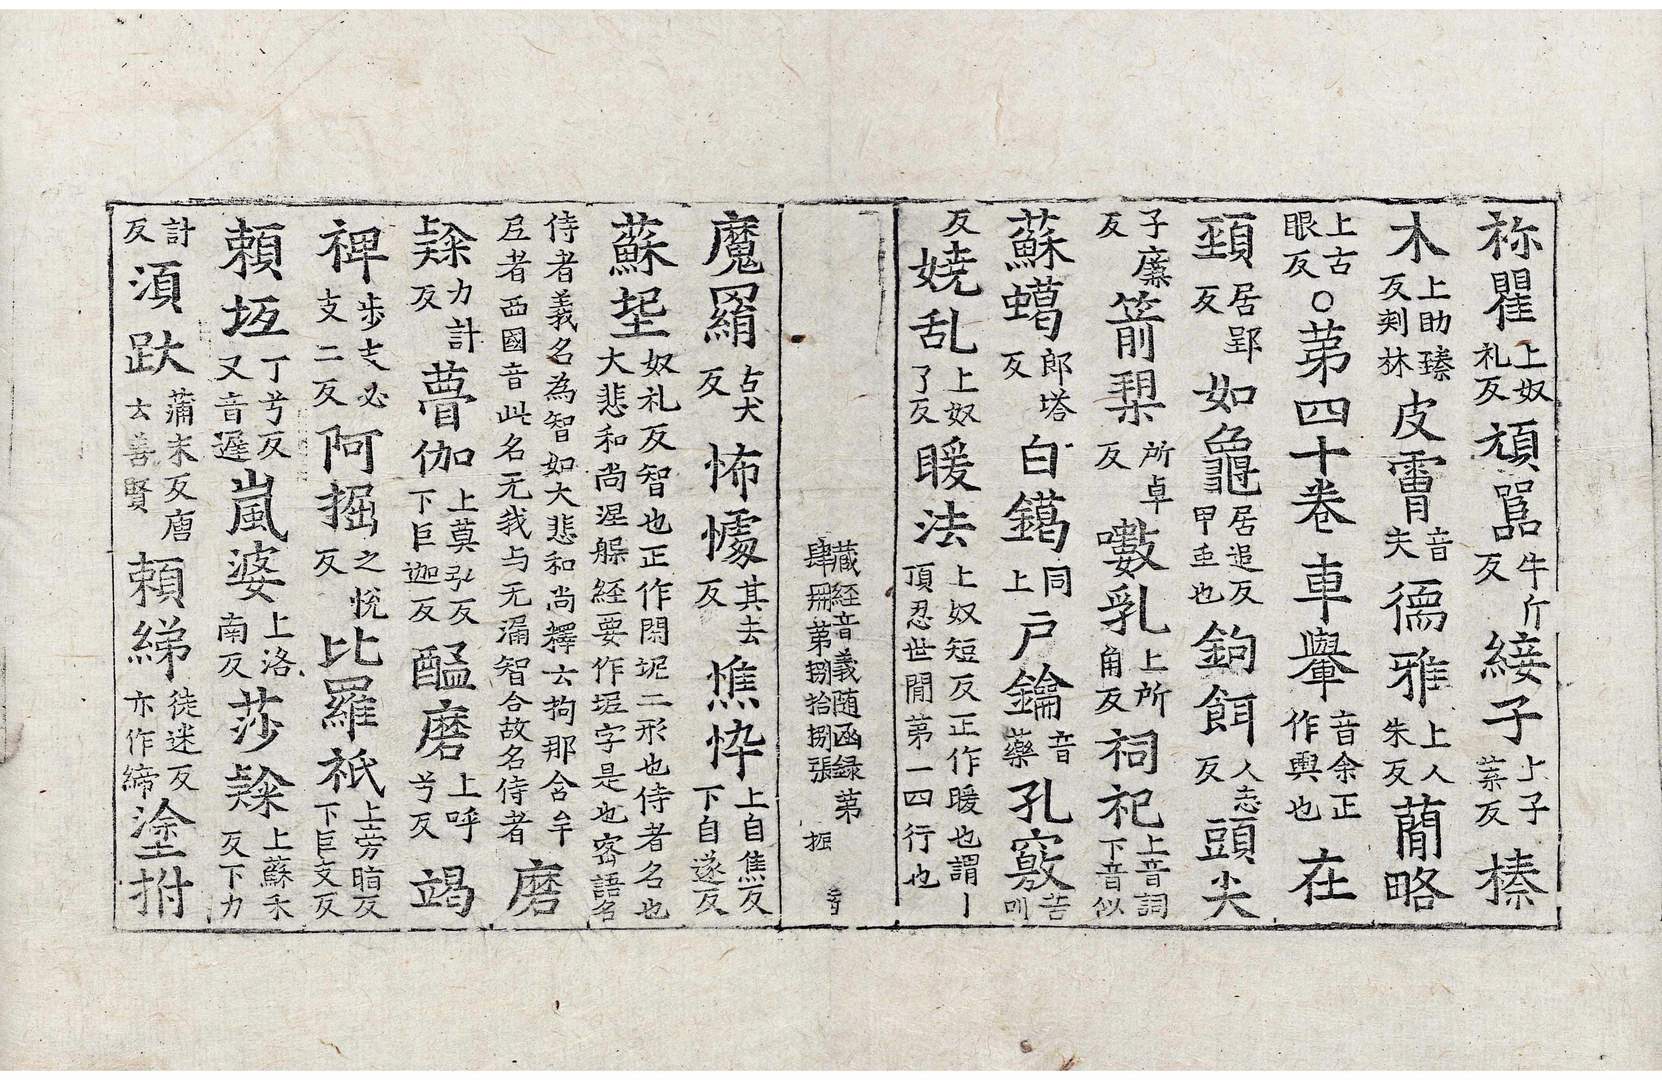 祢瞿上奴礼反頑嚚牛斤反緌子上子蘂反榛
木上助臻反剡林皮𩂣音夫㩻雅上人朱反蕳略
上古眼反○第四十卷車轝音余正作輿也在
頸居郢反如龜居追反甲虫也鉤餌人志反頭尖
子廉反箭𣖯所卓反嗽乳上所角反祠祀上音詞下音似
蘇蠍郎塔反白鑞同上戶鑰音藥孔竅苦叫
反嬈乱上奴了反暖法上奴短反正作暖也謂頂忍世間第一四行也
藏經音義随函録第肆冊第捌拾捌張 振
魔羂古犬反怖懅其去反憔悴上自焦反下自遂反
蘇埿奴礼反智也正作𨳝坭二形也侍者名也大悲和尚涅槃経要作埿字是也密語名
侍者義名為智如大悲和尚釋云拘那含牟𡰱者西國音此名无我与无漏智合故名侍者磨
隸力計反瞢伽上莫弘反下巨迦反醯磨上呼兮反竭
裨步支必支二反阿掘之悅反比羅祇上旁脂反下巨支反
頼坘丁兮反又音遲嵐婆上洛南反莎隸上蘇禾反下力
計反湏趺蒲末反唐云善賢頼綈徒迷反亦作締塗拊